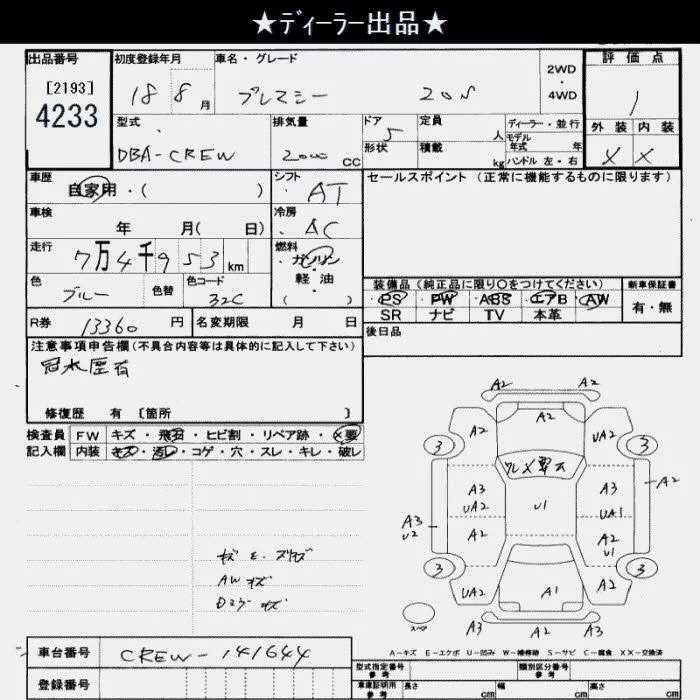 ★ディーラー出品★
出品番号 初度登録年月 車名・グレード 2WD・4WD 評価点
[2193]
4233 18 8月 プレマシー 20S 1
型式 排気量 ドア 5 定員 人 ディーラー・並行 外装 内装
モデル年式 年
DBA-CREW 2000 CC 形状 積載 kg ハンドル 左・右 X X
車歴 自家用・( ) シフト AT セールスポイント (正常に機能するものに限ります)
車検 年 月( 日) 冷房 AC
走行 7万4千953km 燃料 ガソリン・軽油( )
色 ブルー 色替 色コード 32C
装備品 (純正品に限り○をつけてください) 新車保証書
PS・PW・ABS・エアB・AW 有・無
SR ナビ TV 本革
R券 13360円 名変期限 月 日 後日品
注意事項申告欄(不具合内容等は具体的に記入して下さい)
冠水歴有
修復歴 有 [箇所 ]
検査員 FW キズ・飛石・ヒビ割・リペア跡・X要
記入欄 内装 キズ・汚レ・コゲ・穴・スレ・キレ・破レ
A2 A2
A2 A2 UA2
3 3
A3 A3 A2
UA2 U1 UA1
A3 A2 A2
U2 U1
3 3
UA2 A1 A2
A3 A3
スペア
AWキズ
A-キズ E-エクボ U-凹み W-補修跡 S-サビ C-腐食 XX-交換済
車台番号 CREW-141644
登録番号
型式指定番号 参考 類別区分番号 参考
車庫証明用 参考 長さ cm 幅 cm 高さ cm